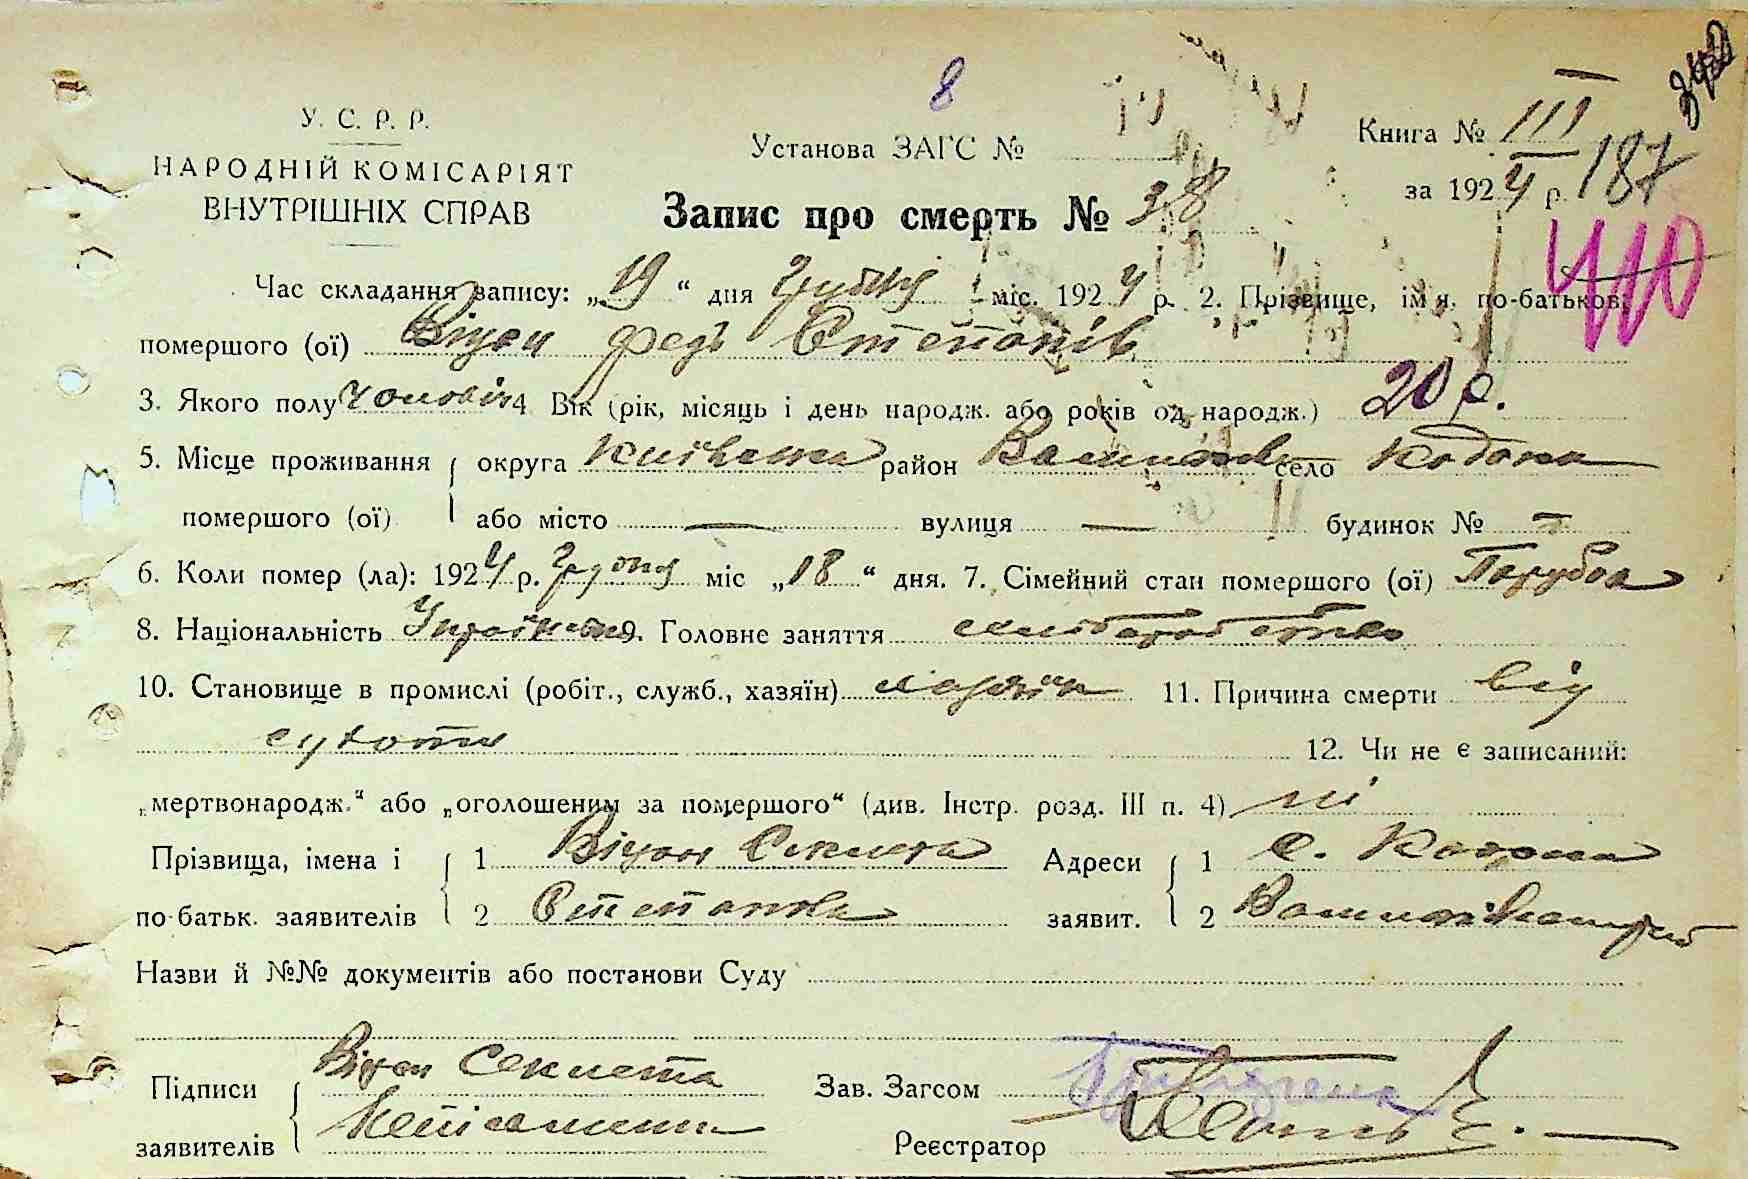 8
У. С. Р. Р.
НАРОДНІЙ КОМІСАРІЯТ
ВНУТРІШНІХ СПРАВ
Установа ЗАГС №
Книга № III
за 1924 р. 187
Запис про смерть № 38
410
Час складання запису: „19“ дня Грудня міс. 1924 р. 2. Прізвище, ім'я. по-батьков.
помершого (ої) Віцен Федь Степанів
3. Якого полу Чоловіч 4 Вік (рік, місяць і день народж. або років од народж.) 20 р.
5. Місце проживання округа Київська район село Кодака
помершого (ої) або місто — вулиця — будинок № —
6. Коли помер (ла): 1924 р. Грудня міс „18“ дня. 7. Сімейний стан помершого (ої) Парубок
8. Національність 9. Головне заняття
10. Становище в промислі (робіт., служб., хазяїн) хазяїн 11. Причина смерти від
сухоти 12. Чи не є записаний:
„мертвонародж.“ або „оголошеним за помершого“ (див. Інстр. розд. III п. 4) ні
Прізвища, імена і 1 Віцен Секлета Адреси 1 с. Кодака
по-батьк. заявителів 2 Степанова заявит. 2
Назви й №№ документів або постанови Суду
Підписи Віцен Секлета
Зав. Загсом
заявителів Неписьменна
Реєстратор